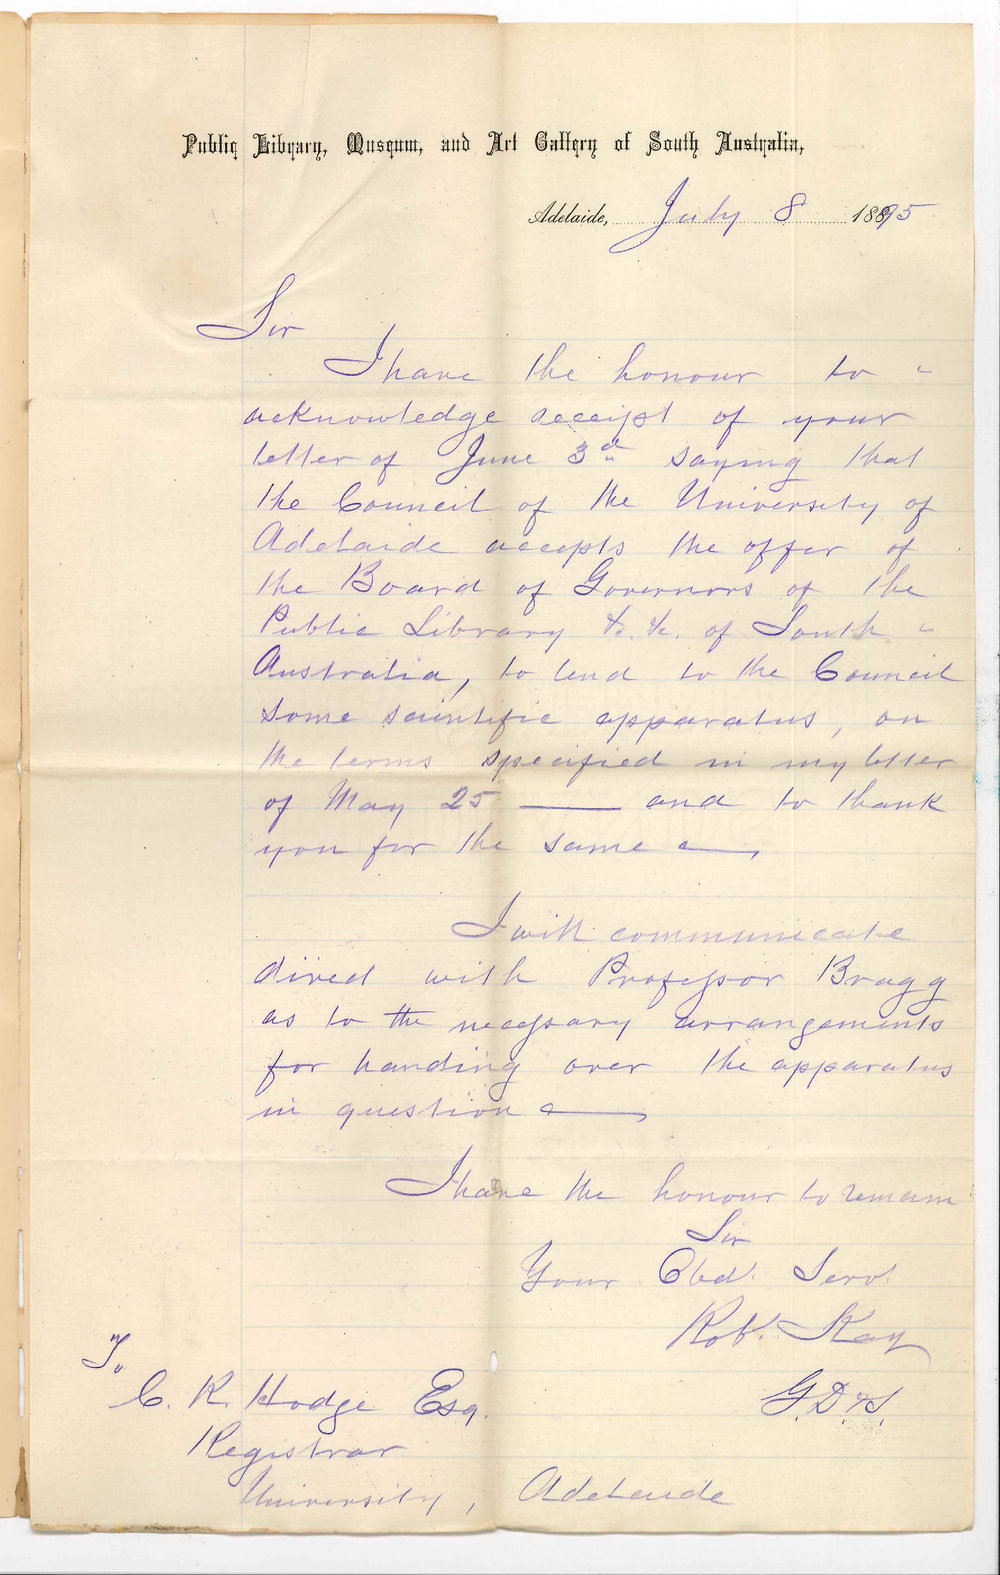 Public Library, Museum, and Art Gallery of South Australia,
Adelaide, July 8 1895
Sir
I have the honour to
acknowledge receipt of your
letter of June 3d saying that
the Council of the University of
Adelaide accepts the offer of
the Board of Governors of the
Public Library &c. &c. of South
Australia, to lend to the Council
some scientific apparatus, on
the terms specified in my letter
of May 25 — and to thank
you for the same —
I will communicate
direct with Professor Bragg
as to the necessary arrangements
for handing over the apparatus
in question —
I have the honour to remain
Sir
Your Obd. Serv.
Rob. Kay
G.D.&S.
To
C. R. Hodge Esq.
Registrar
University, Adelaide